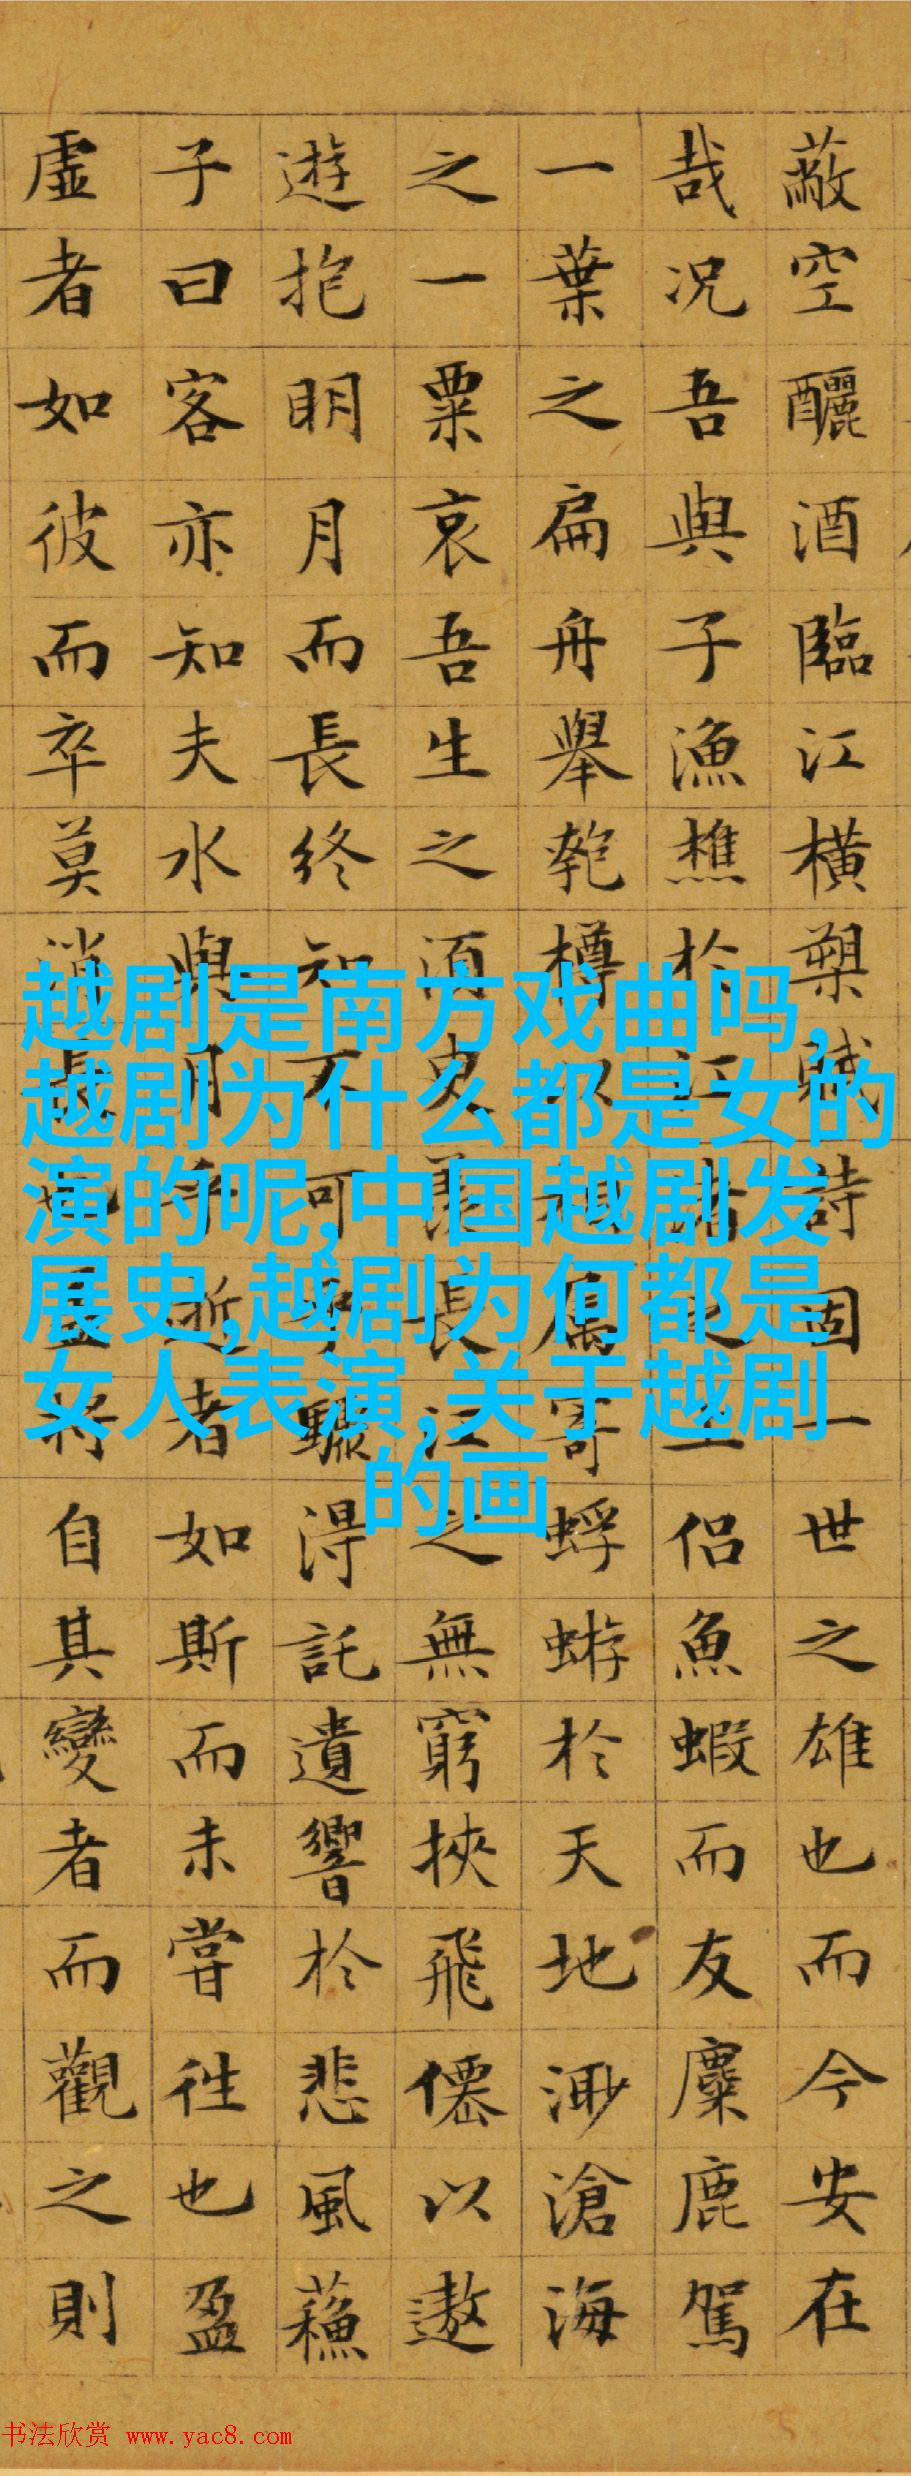 蔽空釃酒臨江橫槊賦詩固一世之雄也而今安在
哉况吾與子漁樵於江渚之上侶魚蝦而友麋鹿駕
一葉之扁舟舉匏樽以相属寄蜉蝣於天地渺滄海
之一粟哀吾生之須臾羨長江之無窮挾飛僊以遨
遊抱明月而長終知不可乎驟得託遺響於悲風蘓
子曰客亦知夫水與月乎逝者如斯而未嘗往也盈
虛者如彼而卒莫消長也盖将自其變者而觀之則
越剧是南方戏曲吗,
越剧为什么都是女的
演的呢,中国越剧发
展史,越剧为何都是
女人表演,关于越剧
的画
书法欣赏 www.yac8.com